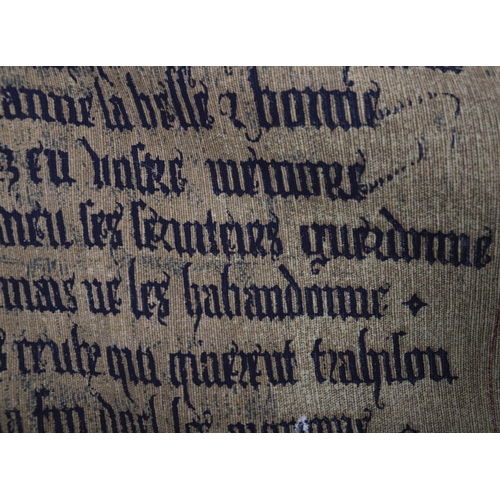 anne la belle & bonne
z en vostre memore
dieu ses seruteurs guerdonne
mais ne les habandonne
s ceulx qui quierent trahison